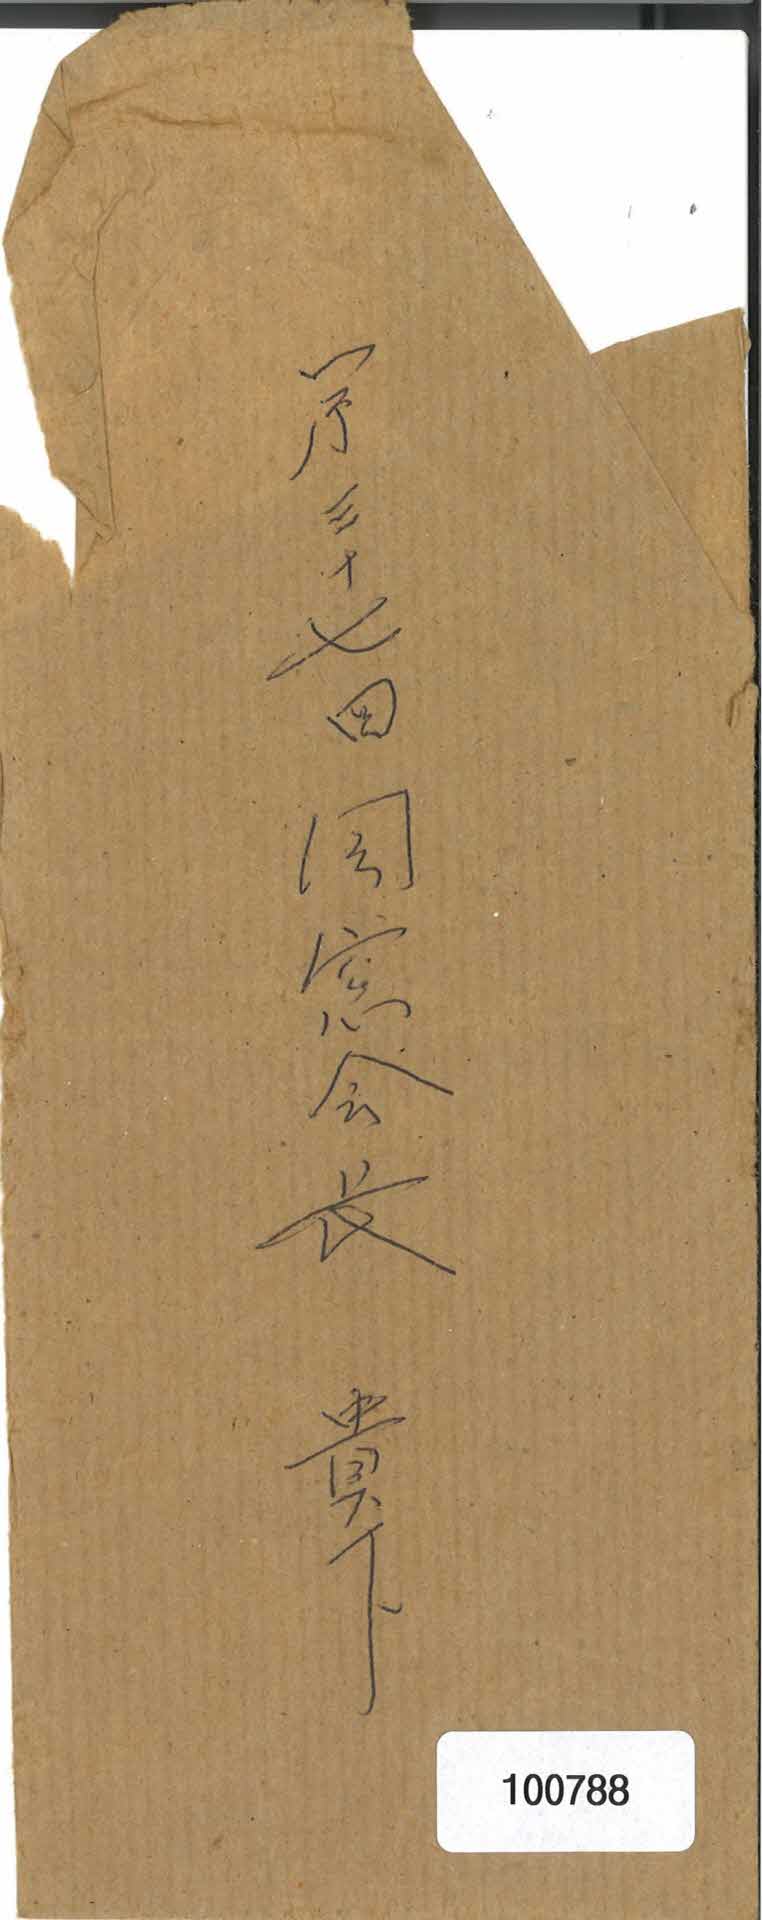 第三十七回 同窓会長 貴下
100788